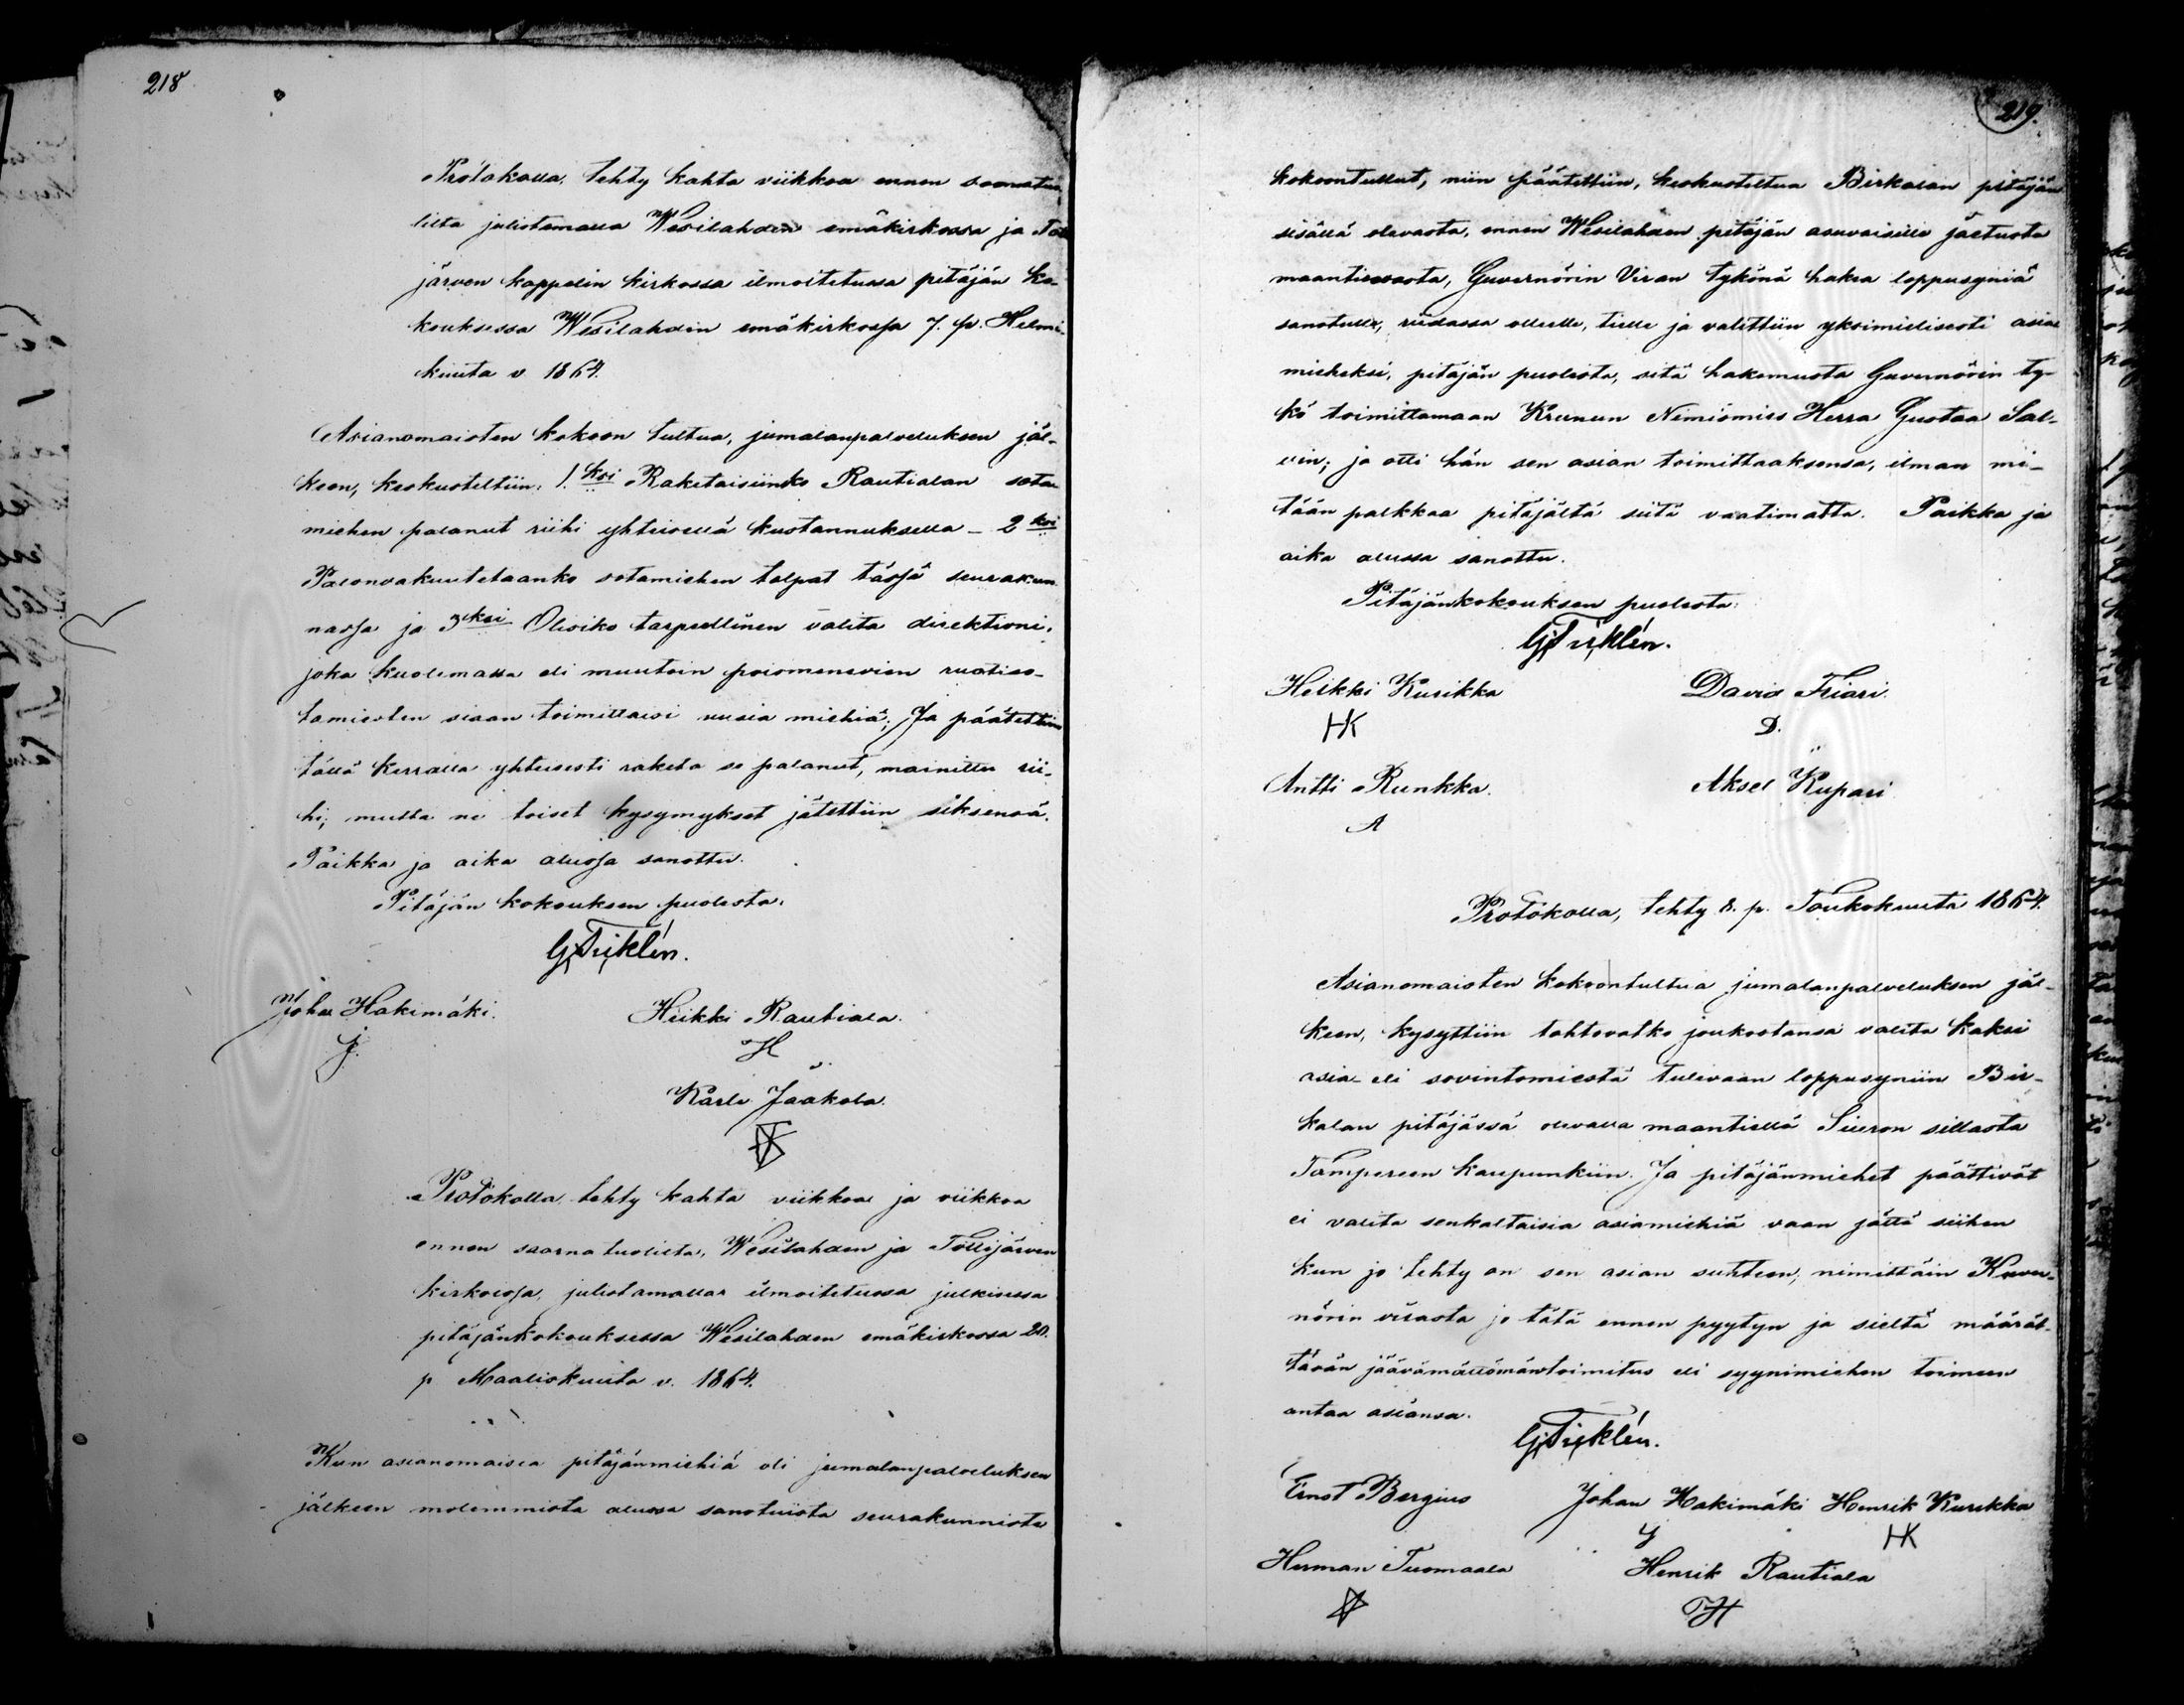 218
Protokolla, tehty kahta viikkoa ennen saarnatuo
lilta julistamalla Wesilahden emäkirkossa ja Töl
järven kappelin kirkossa ilmoitetussa pitäjän ko-
kouksessa Wesilahden emäkirkossa 7. p. Helmi-
kuuta v. 1864.
Asianomaisten kokoon tultua, jumalanpalveluksen jäl-
keen, keskusteltiin: 1. ksi Raketaisiinko Rautialan sota-
miehen palanut riihi yhteisellä kustannuksella – 2 ksi
Palonvakuutetaanko sotamiehen tolpat tässä seurakun
nassa ja 3 ksi Olisiko tarpeellinen valita direktioni,
joka kuolemassa eli muutoin poismenevien ruotiso-
tamiesten siaan toimittaisi uusia miehiä; Ja päätettiin
tällä kerralla yhteisesti raketa se palanut, mainittu rii-
hi; mutta ne toiset kysymykset jätettiin siksensä.
Paikka ja aika alussa sanottu.
Pitäjän kokouksen puolesta:
G Ticklén.
Johan Hakimäki. Heikki Rautiala.
J. H
Karle Jaakola.
Protokolla, tehty kahta viikkoa ja viikkoa
ennen saarnatuolilta, Wesilahden ja Töllijärven
kirkoissa, julistamallar ilmoitetussa julkisessa
pitäjänkokouksessa Wesilahden emäkirkossa 20.
p Maaliskuuta v. 1864.
Kun asianomaisia pitäjänmiehiä oli jumalanpalveluksen
jälkeen molemmista alussa sanotuista seurakunnista
219.
kokoontullut, niin päätettiin, keskusteltua Birkalan pitäjän
sisällä olevasta, ennen Wesilahden pitäjän asuvaisille jaetusta
maantieosasta, Guvernörin Viran tykönä hakea loppusyniä
sanotulle, riidassa olleelle, tielle ja valittiin yksimielisesti asia
mieheksi, pitäjän puolesta, sitä hakemusta Guvernörin ty-
kö toimittamaan Krunun Nimiömies Herra Gustaa Sal-
vin; ja otti hän sen asian toimittaaksensa, ilman mi-
tään palkkaa pitäjältä siitä vaatimatta. Paikka ja
aika alussa sanottu.
Pitäjänkokouksen puolesta:
G Ticklén.
Heikki Kurikka David Friari.
HK D.
Antti Runkka. Aksel Kupari
A
Protokolla, tehty 8. p. Toukokuuta 1864.
Asianomaisten kokoontultua jumalanpalveluksen jäl-
keen, kysyttiin tahtovatko joukostansa valita kaksi
asia- eli sovintomiestä tulevaan loppusyniin Bir-
kalan pitäjässä olevalla maantiellä Siuron sillasta
Tampereen kaupunkiin. Ja pitäjänmiehet päättivät
ei valita senkaltaisia asiamiehiä vaan jättä siihen
kun jo tehty on sen asian suhteen; nimittäin Kuver-
nörin virasta jo tätä ennen pyytyn ja sieltä määrät-
tävän jäävämättömäntoimitus eli syynimiehen toimeen
antaa asiansa.
G Ticklén.
Ernst Bergius Johan Hakimäki Henrik Kurikka
J HK
Herman Tuomaala Henrik Rautiala
H